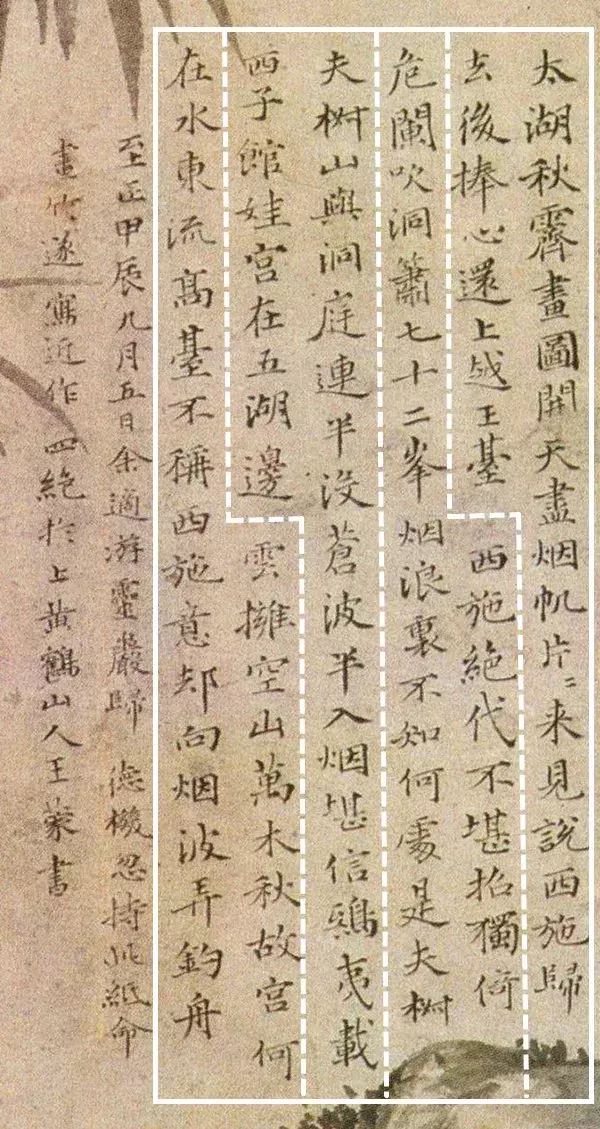 太湖秋霽畫圖開天盡烟帆片〻来見說西施歸
去後捧心還上越王臺 西施絕代不堪招獨倚
危闌吹洞簫七十二峯烟浪裏不知何處是夫椒
夫椒山與洞庭連半没蒼波半入烟堪信鴟夷載
西子館娃宮在五湖邊 雲擁空山萬木秋故宮何
在水東流高臺不稱西施意却向烟波弄釣舟
至正甲辰九月五日余適游靈巖歸 德機忽持此紙命
畫竹遂寫近作四絕於上黃鶴山人王蒙書